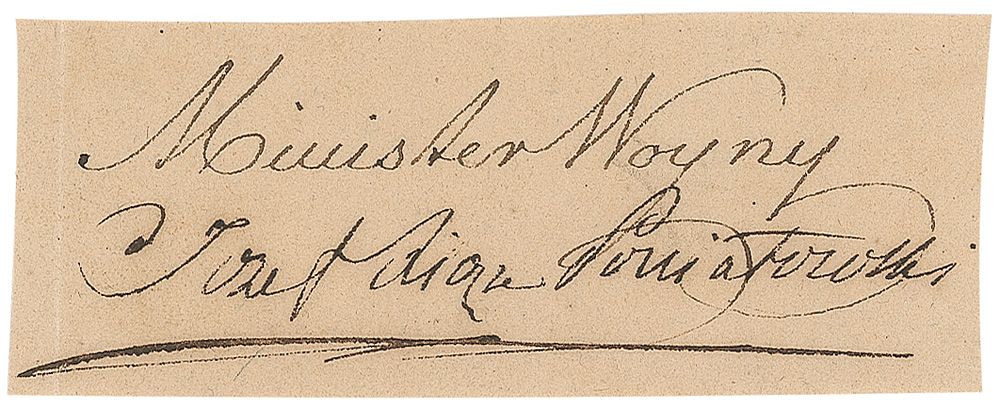 Minister Woyny
Jozef Xiąże Poniatowski